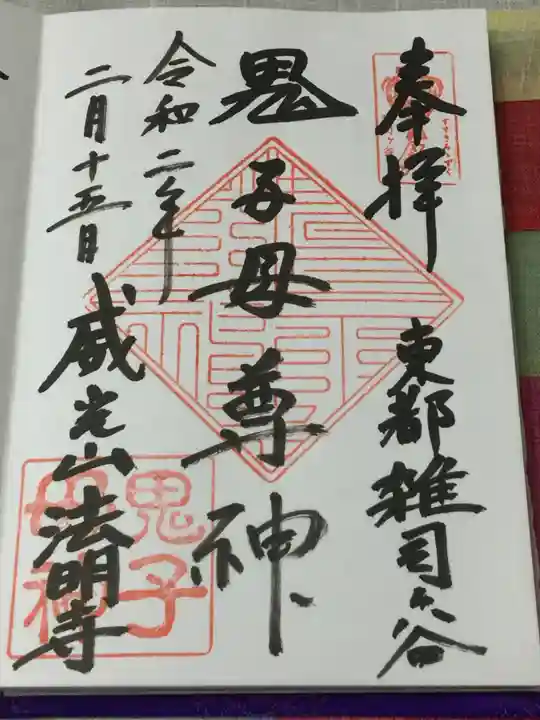 奉拝
東都雑司ヶ谷
鬼子母尊神
令和二年
二月十五日
威光山法明寺
鬼子
母神